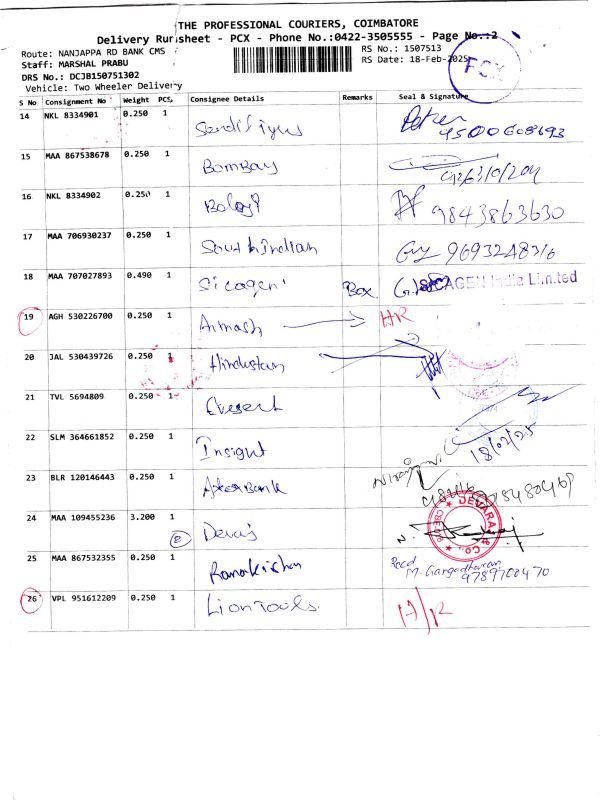 THE PROFESSIONAL COURIERS, COIMBATORE
Delivery Runsheet - PCX - Phone No.:0422-3505555 - Page No.:2
Route: NANJAPPA RD BANK CMS
RS No.: 1507513
Staff: MARSHAL PRABU
RS Date: 18-Feb-2025
DRS No.: DCJB150751302
Vehicle: Two Wheeler Delivery
PCX
S No Consignment No Weight PCS Consignee Details Remarks Seal & Signature
14 NKL 8334901 0.250 1
15 MAA 867538678 0.250 1 Bombay
16 NKL 8334902 0.250 1 Balaji 9843863630
17 MAA 706930237 0.250 1 South Indian 9693248316
18 MAA 707027893 0.490 1 Sicagen Box SICAGEN India Limited
19 AGH 530226700 0.250 1 HR
20 JAL 530439726 0.250 1 Hindustan
21 TVL 5694809 0.250 1
22 SLM 364661852 0.250 1 Insight 18/02/25
23 BLR 120146443 0.250 1
24 MAA 109455236 3.200 1 Devaraj DEVARAJ & CO.,
25 MAA 867532355 0.250 1 Ramakrishna Recd
M. Gangadharan
9789700470
26 VPL 951612209 0.250 1 Lion Tools.